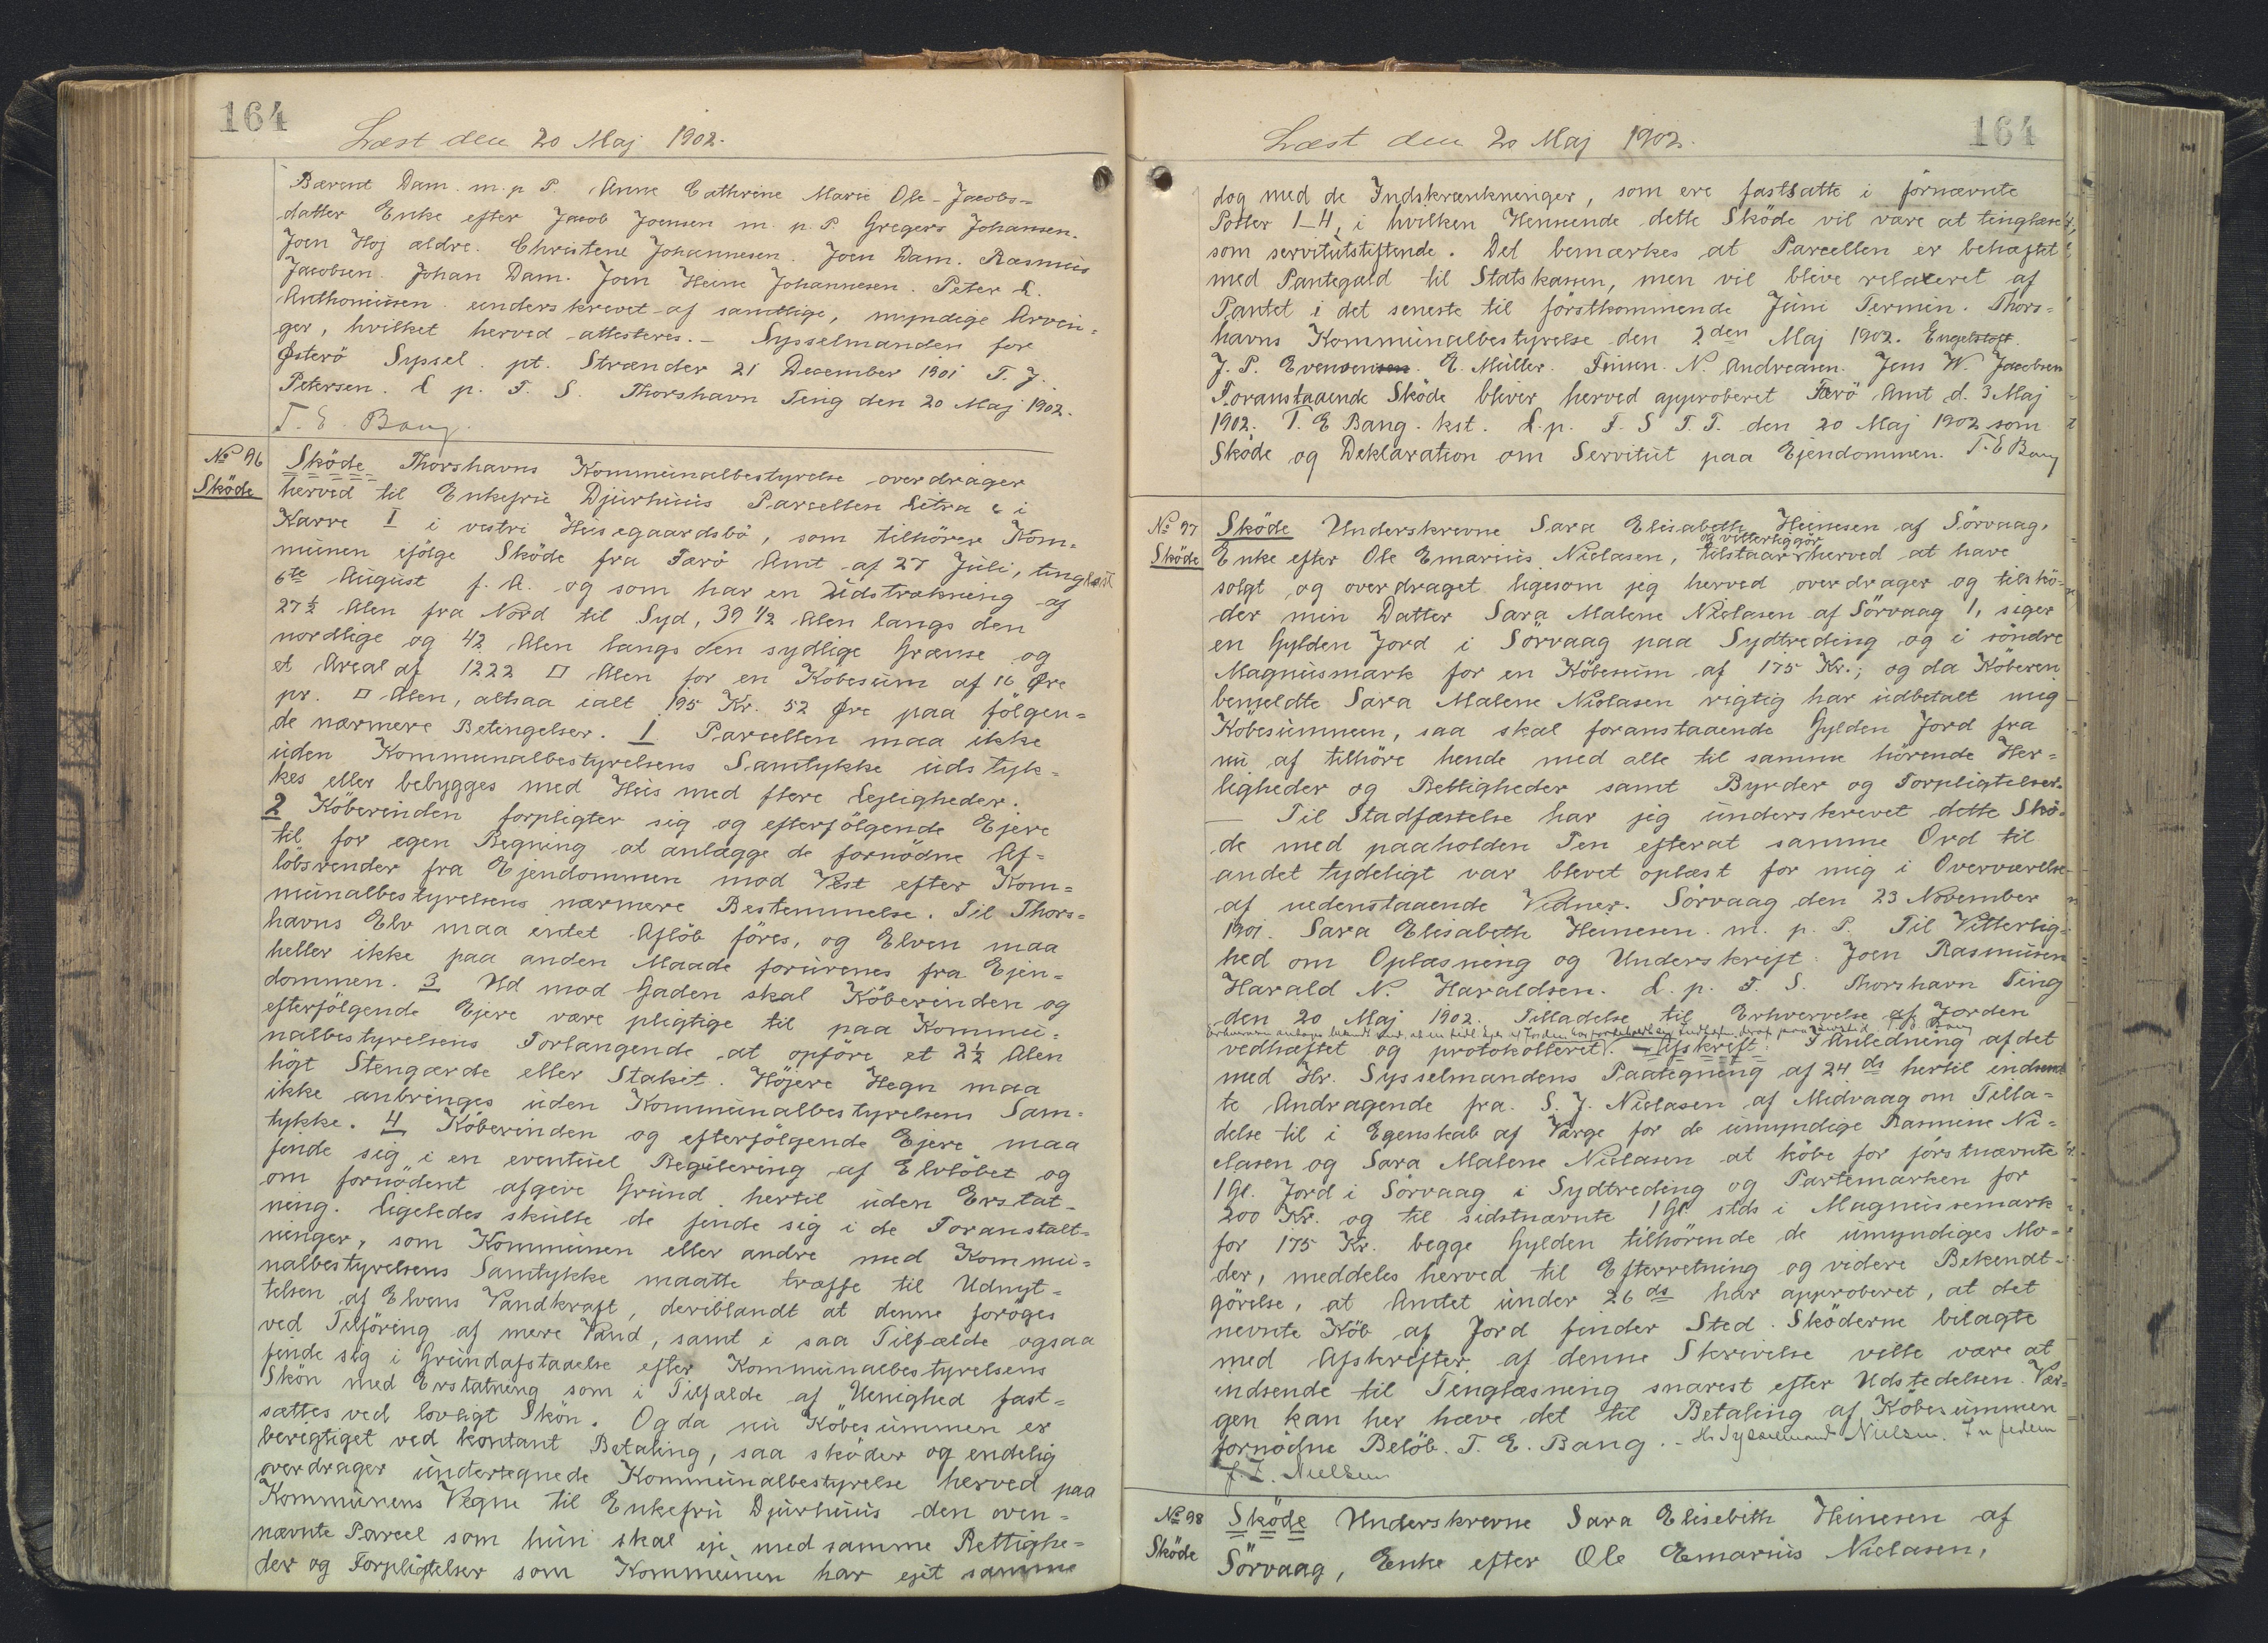 164
Læst den 20 Maj 1902.
Bærent Dam. m. p P. Anne Cathrine Marie Ole-Jacobs=
datter Enke efter Jacob Joensen m. p. P. Gregers Johansen.
Joen Høj ældre. Christene Johannesen. Joen Dam. Rasmus
Jacobsen. Johan Dam. Joen Heine Johannesen. Peter L.
Anthoniusen underskrevet af samtlige, myndige Arvin=
ger, hvilket herved attesteres. – Sysselmanden for
Østerö Syssel. pt. Strænder 21 December 1901 T. J.
Petersen. L p. T. S. Thorshavn Ting den 20 Maj 1902.
T. E. Bang.
№ 96
Sköde
Sköde Thorshavns Kommunalbestyrelse overdrager
herved til Enkefru Djurhuus Parcellen Litra c i
Karre I i vestri Husegaardsbö, som tilhörer Kom=
munen ifölge Sköde fra Færö Amt af 27 Juli, tinglæst
6te August f. A. og som har en Udstrækning af
27½ Alen fra Nord til Syd, 39 1/2 Alen langs den
nordlige og 42 Alen langs den sydlige Grænse og
et Areal af 1222 □ Alen for en Köbesum af 16 Øre
pr. □ Alen, altsaa ialt 195 Kr. 52 Øre paa fölgen=
de nærmere Betingelser. 1 Parcellen maa ikke
uden Kommunalbestyrelsens Samtykke udstyk=
kes eller bebygges med Hus med flere Lejligheder.
2 Köberinden forpligter sig og efterfölgende Ejere
til for egen Regning at anlægge de fornödne Af=
löbsrender fra Ejendommen mod Vest efter Kom=
munalbestyrelsens nærmere Bestemmelse. Til Thors=
havns Elv maa intet Aflöb föres, og Elven maa
heller ikke paa anden Maade forurenes fra Ejen=
dommen. 3 Ud mod Gaden skal Köberinden og
efterfölgende Ejere være pligtige til paa Kommu=
nalbestyrelsens Forlangende at opföre et 2½ Alen
högt Stengærde eller Stakit. Höjere Hegn maa
ikke anbringes uden Kommunalbestyrelsens Sam=
tykke. 4 Köberinden og efterfölgende Ejere maa
finde sig i en eventuel Regulering af Elvlöbet og
om fornödent afgive Grund hertil uden Erstat=
ning. Ligeledes skulle de finde sig i de Foranstalt=
ninger, som Kommunen eller andre med Kommu=
nalbestyrelsens Samtykke maatte træffe til Udnyt=
telsen af Elvens Vandkraft, deriblandt at denne foröges
ved Tilföring af mere Vand, samt i saa Tilfælde ogsaa
finde sig i Grundafstaaelse efter Kommunalbestyrelsens
Skön med Erstatning som i Tilfælde af Uenighed fast=
sættes ved lovligt Skön. Og da nu Köbesummen er
berigtiget ved kontant Betaling, saa sköder og endelig
overdrager undertegnede Kommunalbestyrelse herved paa
Kommunens Vegne til Enkefru Djurhuus den oven=
nævnte Parcel som hun skal eje med samme Rettighe=
der og Forpligtelser som Kommunen har ejet samme
164
Læst den 20 Maj 1902.
dog med de Indskrænkninger, som ere fastsatte i førnævnte
Poster 1–4, i hvilken Henseende dette Sköde vil være at tinglæse
som servitutstiftende. Det bemærkes at Parcellen er behæftet
med Pantegæld til Statskassen, men vil blive relaxeret af
Pantet i det seneste til förstkommende Juni Termin. Thors=
havns Kommunalbestyrelse den 2den Maj 1902. Engelstoft.
J. P. Evensen. E. Müller. Finsen. N. Andreasen. Jens W. Jacobsen
Foranstaaende Sköde bliver herved approberet Færö Amt d. 3 Maj
1902. T. E Bang. kst. L. p. T. S T. T. den 20 Maj 1902 som
Sköde og Deklaration om Servitut paa Ejendommen. T. E Bang
№ 97
Sköde
Sköde Underskrevne Sara Elisabeth Heinesen af Sörvaag,
og vitterliggör
Enke efter Ole Emarius Niclasen, tilstaar herved at have
solgt og overdraget ligesom jeg herved overdrager og tilskö=
der min Datter Sara Malene Niclasen af Sörvaag 1, siger
en Gylden Jord i Sörvaag paa Sydtreding og i söndre
Magnusmark for en Köbesum af 175 Kr.; og da Köberen
bemeldte Sara Malene Niclasen rigtig har udbetalt mig
Köbesummen, saa skal foranstaaende Gylden Jord fra
nu af tilhöre hende med alle til samme hörende Her=
ligheder og Rettigheder samt Byrder og Forpligtelser.
– Til Stadfæstelse har jeg underskrevet dette Skö=
de med paaholden Pen efterat samme Ord til
andet tydeligt var blevet oplæst for mig i Overværelse
af nedenstaaende Vidner. Sörvaag den 23 November
1901. Sara Elisabeth Heinesen. m. p. P. Til Vitterlig=
hed om Oplæsning og Underskrift: Joen Rasmusen
Harald N. Haraldsen. L. p. T. S. Thorshavn Ting
den 20 Maj 1902. Tilladelse til Erhvervelse af Jorden
vedhæftet og protokolleret. – Afskrift: I Anledning af det
med Hr. Sysselmandens Paategning af 24 ds hertil indsend
te Andragende fra S. J. Niclasen af Midvaag om Tilla=
delse til i Egenskab af Værge for de umyndige Rasmine Ni=
clasen og Sara Malene Niclasen at köbe for förstnævnte
1 Gl. Jord i Sörvaag i Sydtreding og Partemarken for
200 Kr. og til sidstnævnte 1 Gl. stds i Magnussemark
for 175 Kr. begge Gylden tilhörende de umyndiges Mo=
der, meddeles herved til Efterretning og videre Bekendt=
görelse, at Amtet under 26 ds har approberet, at det
nævnte Köb af Jord finder Sted. Sköderne bilagte
med Afskrifter af denne Skrivelse ville være at
indsende til Tinglæsning snarest efter Udstedelsen. Vær=
gen kan her hæve det til Betaling af Köbesummen
fornödne Belöb. T. E. Bang. – Hr. Sysselmand Nielsen. In fidem
J. L. Nielsen
№ 98
Sköde
Sköde Underskrevne Sara Elisebith Heinesen af
Sörvaag, Enke efter Ole Emarius Niclasen,